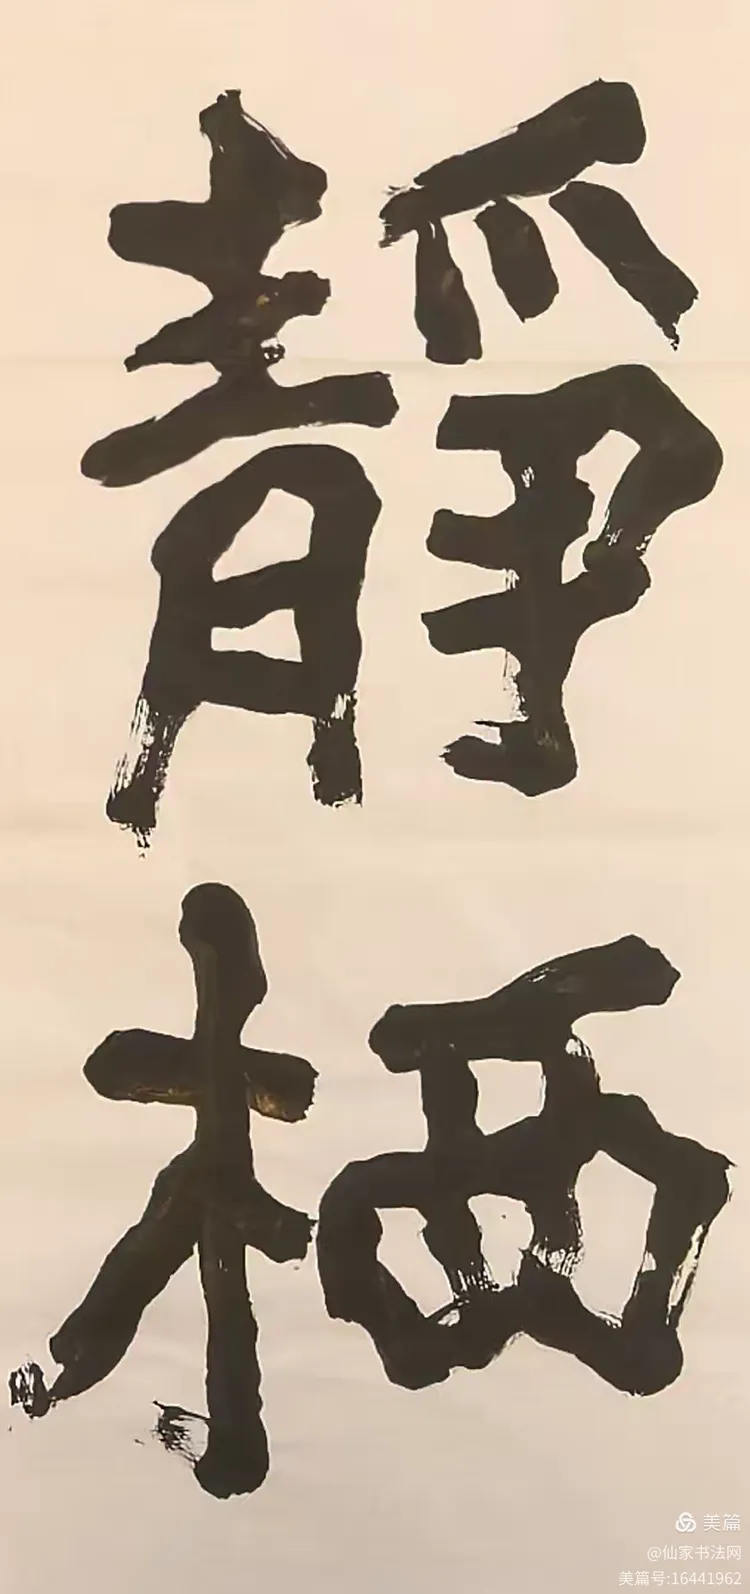 靜栖
美篇
@仙家书法网
美篇号:16441962